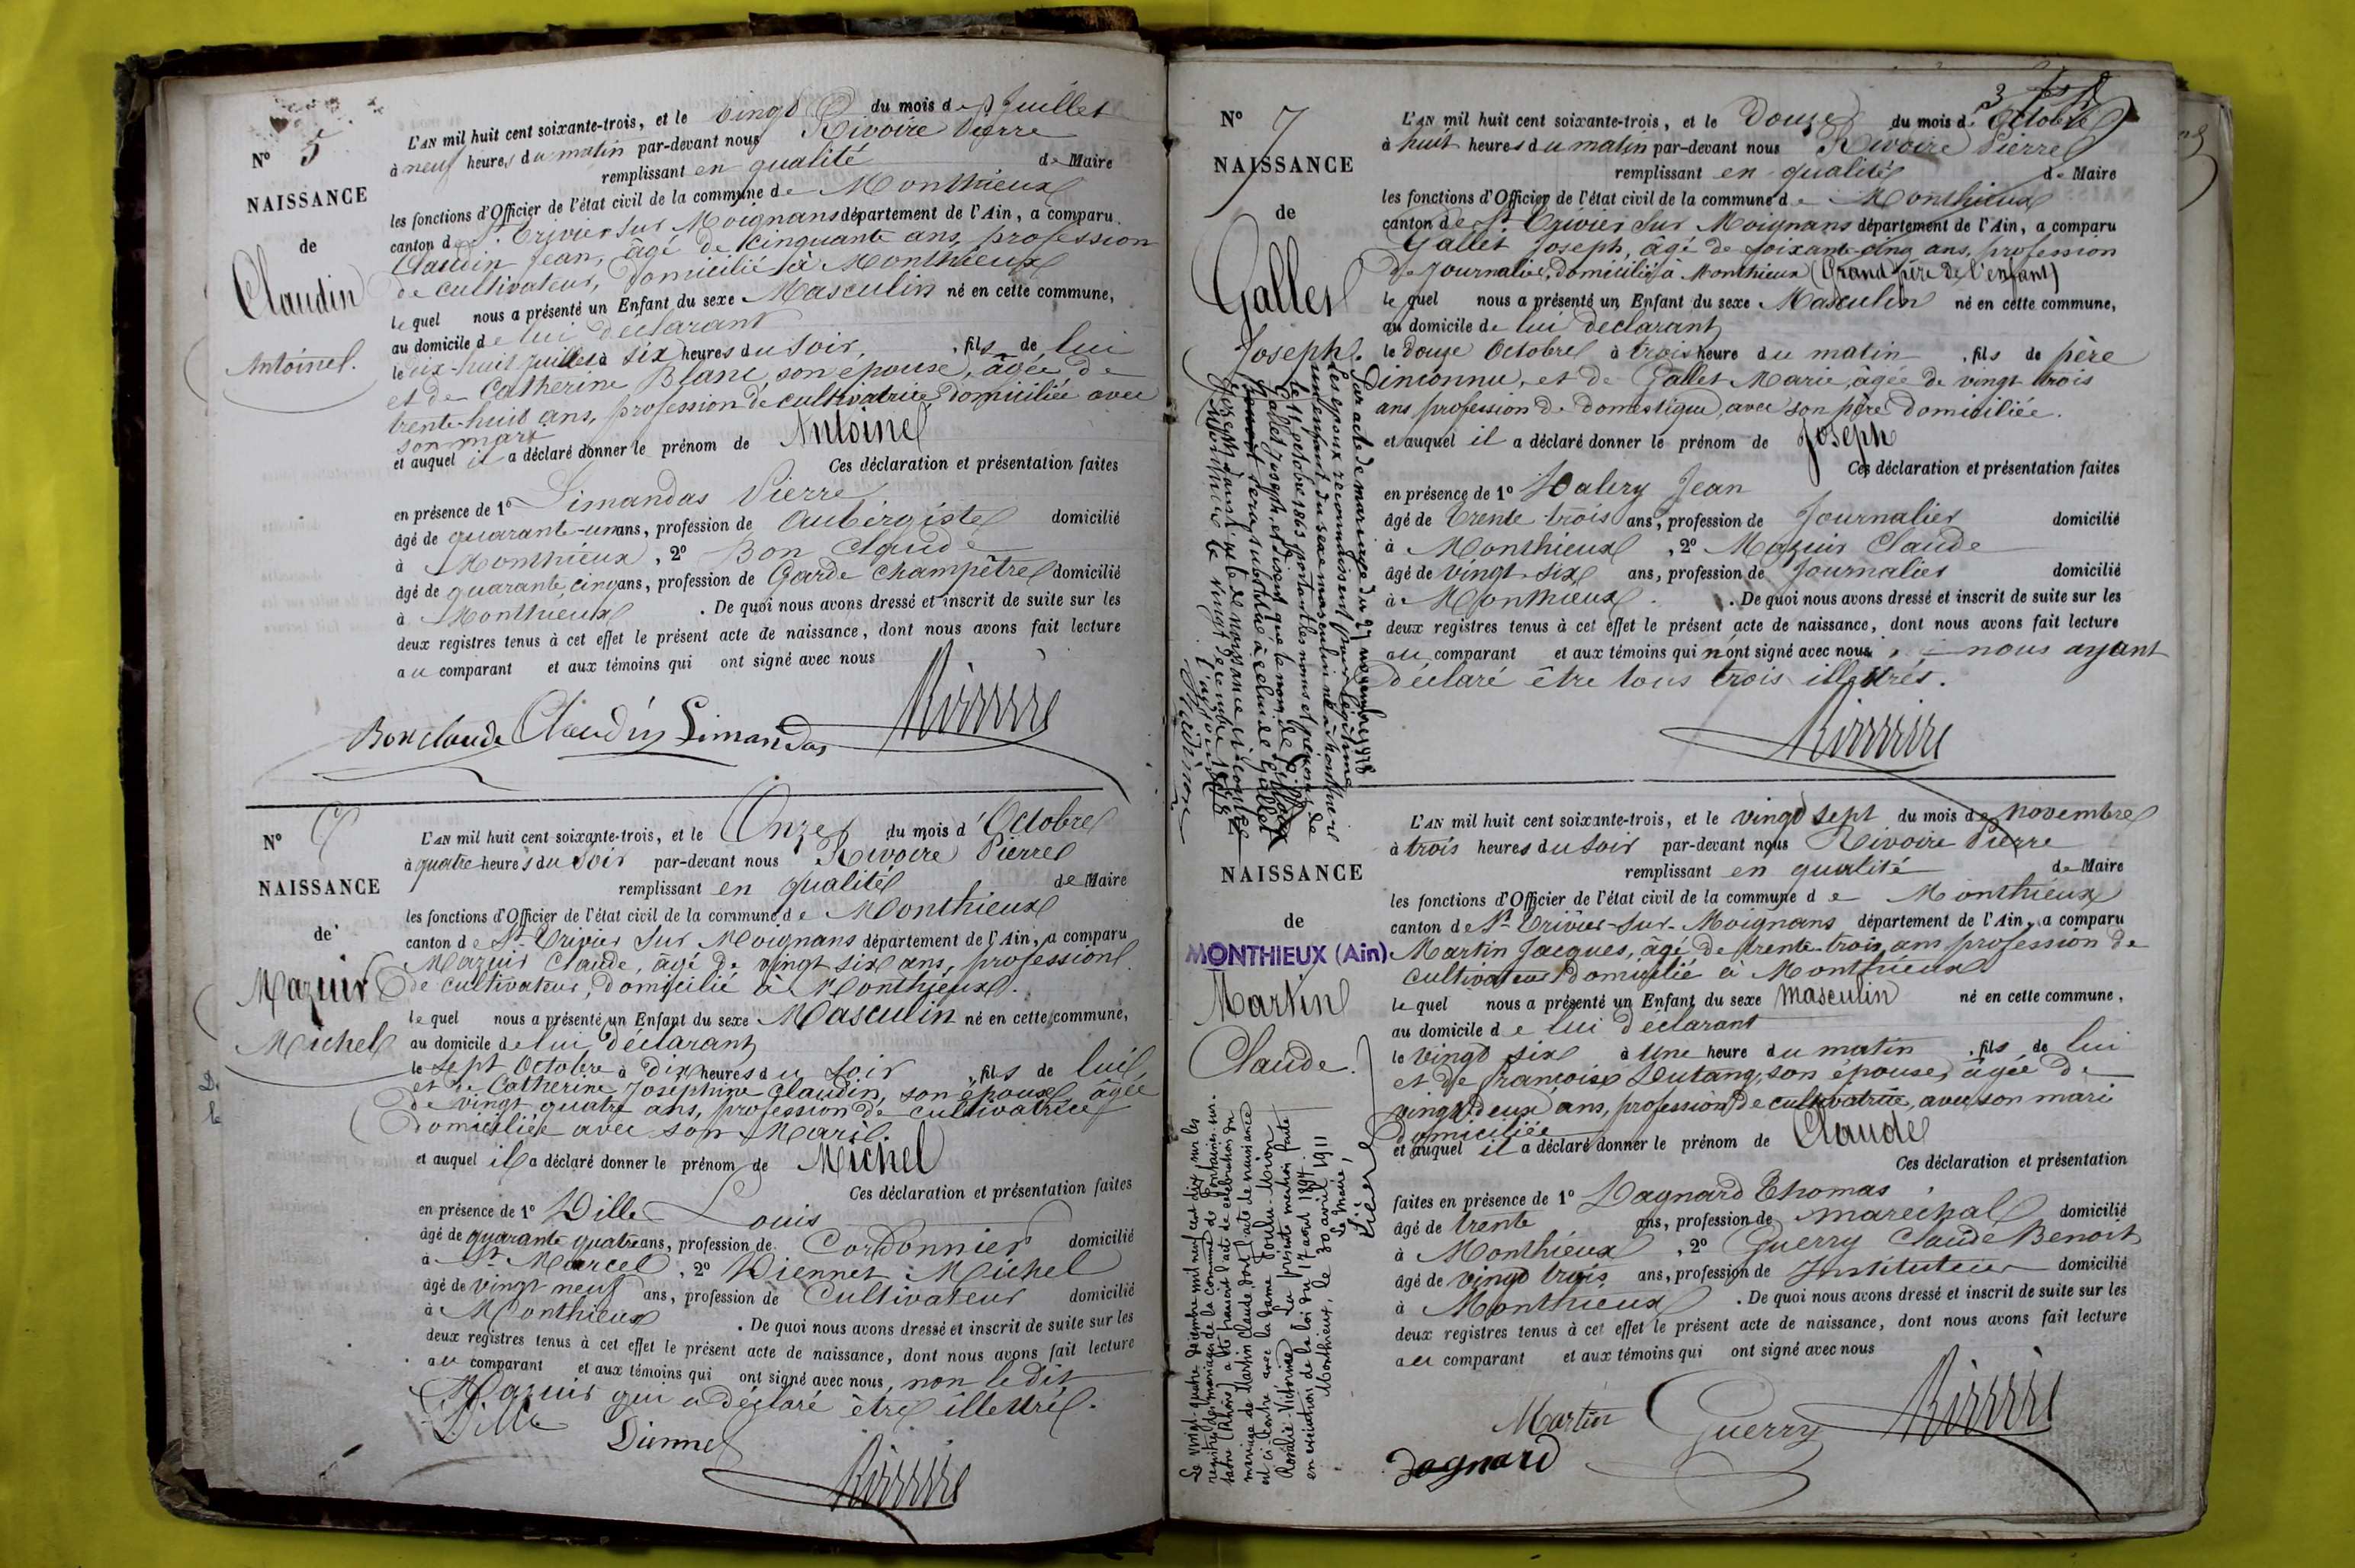 N° 5
NAISSANCE
de
Claudin
Antoine.
L'AN mil huit cent soixante-trois, et le vingt du mois de Juillet
à neuf heures du matin par-devant nous Rivoire Pierre
remplissant en qualité de Maire
les fonctions d'Officier de l'état civil de la commune de Monthieux
canton de St. Trivier sur Moignans département de l'Ain, a comparu
Claudin Jean, âgé de cinquante ans, profession
de cultivateur, domicilié à Monthieux
lequel nous a présenté un Enfant du sexe Masculin né en cette commune,
au domicile de lui déclarant
le dix-huit juillet à six heures du soir, fils de lui
et de Catherine Blanc son épouse, âgée de
trente-huit ans, profession de cultivatrice, domiciliée avec
son mari
et auquel il a déclaré donner le prénom de Antoine
Ces déclaration et présentation faites
en présence de 1° Limandas Pierre
âgé de quarante-un ans, profession de Aubergiste domicilié
à Monthieux, 2° Bon Claude
âgé de quarante cinq ans, profession de Garde champêtre domicilié
à Monthieux. De quoi nous avons dressé et inscrit de suite sur les
deux registres tenus à cet effet le présent acte de naissance, dont nous avons fait lecture
au comparant et aux témoins qui ont signé avec nous
Bon claude Claudin Limandas Rivoire
N° 6
NAISSANCE
de
Mazuir
Michel
L'AN mil huit cent soixante-trois, et le Onze du mois d'Octobre
à quatre heures du soir par-devant nous Rivoire Pierre
remplissant en qualité de Maire
les fonctions d'Officier de l'état civil de la commune de Monthieux
canton de St. Trivier sur Moignans département de l'Ain, a comparu
Mazuir Claude, âgé de vingt six ans, profession
de cultivateur, domicilié à Monthieux.
lequel nous a présenté un Enfant du sexe Masculin né en cette commune,
au domicile de lui déclarant
le sept Octobre à dix heures du soir, fils de lui,
et de Catherine Joséphine Claudin, son épouse, âgée
de vingt quatre ans, profession de cultivatrice
domiciliée avec son Mari.
et auquel il a déclaré donner le prénom de Michel
Ces déclaration et présentation faites
en présence de 1° Dille Louis
âgé de quarante quatre ans, profession de Cordonnier domicilié
à St. Marcel, 2° Diennet Michel
âgé de vingt neuf ans, profession de Cultivateur domicilié
à Monthieux. De quoi nous avons dressé et inscrit de suite sur les
deux registres tenus à cet effet le présent acte de naissance, dont nous avons fait lecture
au comparant et aux témoins qui ont signé avec nous, non le dit
Mazuir qui a déclaré être illettré.
Dille Diennet Rivoire
N° 7
NAISSANCE
de
Gallet
Joseph.
L'AN mil huit cent soixante-trois, et le Douze du mois d'Octobre
à huit heures du matin par-devant nous Rivoire Pierre
remplissant en qualité de Maire
les fonctions d'Officier de l'état civil de la commune de Monthieux
canton de St. Trivier sur Moignans département de l'Ain, a comparu
Gallet Joseph, âgé de soixante-cinq ans, profession
de Journalier, domicilié à Monthieux (Grand père de l'enfant)
lequel nous a présenté un Enfant du sexe Masculin né en cette commune,
au domicile de lui déclarant
le douze Octobre à trois heure du matin, fils de père
inconnu, et de Gallet Marie, âgée de vingt trois
ans profession de domestique, avec son père domiciliée.
et auquel il a déclaré donner le prénom de Joseph
Ces déclaration et présentation faites
en présence de 1° Valery Jean
âgé de trente trois ans, profession de Journalier domicilié
à Monthieux, 2° Mazuir Claude
âgé de vingt-six ans, profession de Journalier domicilié
à Monthieux. De quoi nous avons dressé et inscrit de suite sur les
deux registres tenus à cet effet le présent acte de naissance, dont nous avons fait lecture
au comparant et aux témoins qui n'ont signé avec nous, nous ayant
déclaré être tous trois illettrés.
Rivoire
Par acte de mariage du 27 novembre
les époux reconnaissent pour légitime
un enfant du sexe masculin né à Monthieux
le 12 octobre 1863 portant les noms et prénoms de
Gallet Joseph, et disent que le nom de
sera substitué à celui de Gallet
dans l'acte de naissance ci-contre
Monthieux le vingt décembre
NAISSANCE
de
MONTHIEUX (Ain)
Martin
Claude.
L'AN mil huit cent soixante-trois, et le vingt sept du mois de novembre
à trois heures du soir par-devant nous Rivoire Pierre
remplissant en qualité de Maire
les fonctions d'Officier de l'état civil de la commune de Monthieux
canton de St. Trivier-sur-Moignans département de l'Ain, a comparu
Martin Jacques, âgé de trente-trois ans profession de
cultivateur domicilié à Monthieux
lequel nous a présenté un Enfant du sexe masculin né en cette commune,
au domicile de lui déclarant
le vingt six à une heure du matin, fils de lui
et de Françoise Dutang, son épouse, âgée de
vingt deux ans, profession de cultivatrice, avec son mari
domiciliée
et auquel il a déclaré donner le prénom de Claude
Ces déclaration et présentation
faites en présence de 1° Dagnard Thomas
âgé de trente ans, profession de maréchal domicilié
à Monthieux, 2° Guerry Claude Benoit
âgé de vingt trois ans, profession de Instituteur domicilié
à Monthieux. De quoi nous avons dressé et inscrit de suite sur les
deux registres tenus à cet effet le présent acte de naissance, dont nous avons fait lecture
au comparant et aux témoins qui ont signé avec nous
Martin Guerry Rivoire
Dagnard
Le vingt-quatre décembre mil neuf cent dix, sur les
registres des mariages de la commune de Fontaines-sur-
Saône (Rhône) a été transcrit l'acte de célébration du
mariage de Martin Claude, dont l'acte de naissance
est ci-contre avec la dame
Rosalie-Victorine. La présente mention faite
en exécution de la loi du 17 août 1897.
Monthieux, le 30 avril 1911
Le Maire,